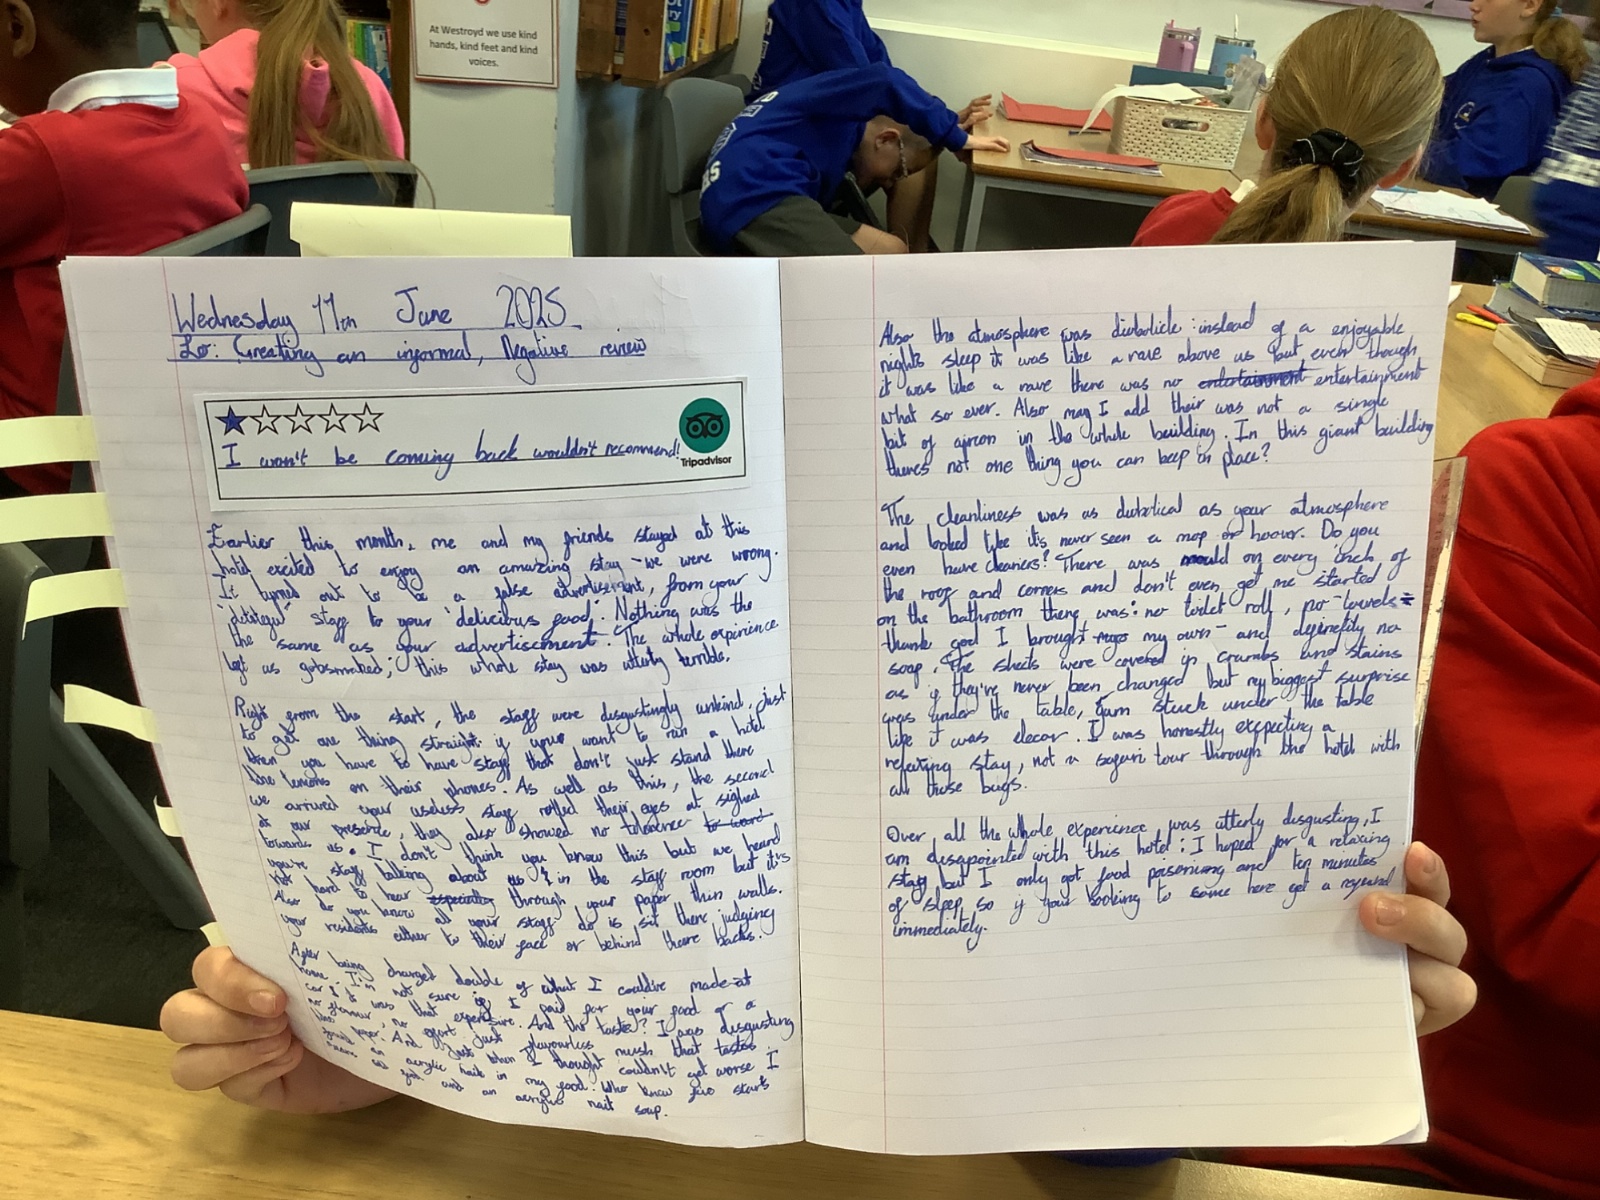 At Westroyd we use kind
hands, kind feet and kind
voices.
Wednesday 11th June 2025
Lo: Creating an informal, Negative review
I won't be coming back wouldn't recommend!
Tripadvisor
Earlier this month, me and my friends stayed at this
hotel excited to enjoy an amazing stay - we were wrong.
It turned out to be a false advertisement, from your
staff to your "delicious food". Nothing was the
the same as your advertisement. The whole experience
left us gobsmaked; this whole stay was utterly terrible.
Right from the start, the staff were disgustingly unkind, just
to get one thing straight: if your want to run a hotel
then you have to have staff that don't just stand there
like lemons on their phones. As well as this, the second
we arrived your useless staff rolled their eyes at sighed
at our presence, they also showed no tolerence to ward
towards us. I don't think you know this but we heard
you're staff talking about us in the staff room but it's
not hard to hear especially through your paper thin walls.
Also do you know all your staff do is sit there judging
your residents either to their face or behind there backs.
After being charged double of what I could've made at
home I'm not sure if I paid for your food or a
car! It was that expensive. And the taste? I was disgusting
no flavour, no effort just flavourless mush that tastes
like paper. And just when I thought couldn't get worse I
found an acrylic nail in my food. Who knew five stars
means and an acrylic nail soup.
Also the atmosphere was diabolicle: instead of a enjoyable
nights sleep it was like a rave above us but even though
it was like a rave there was no entertainment entertainment
what so ever. Also may I add their was not a single
bit of aircon in the whole building. In this giant building
theres not one thing you can keep in place?
The cleanliness was as diabolical as your atmosphere
and looked like it's never seen a mop or hoover. Do you
even have cleaners? There was mould on every inch of
the roof and corners and don't even get me started
on the bathroom there was: no toilet roll, no towels -
thank god I brought my own - and definetly no
soap. The sheets were covered in crumbs and stains
as if they've never been changed but my biggest surprise
was under the table, gum stuck under the table
like it was decor. I was honestly expecting a
relaxing stay, not a safari tour through the hotel with
all those bugs.
Over all the whole experience was utterly disgusting, I
am disapointed with this hotel: I hoped for a relaxing
stay but I only got food poisening and ten minutes
of sleep so if your looking to come here get a refund
immediately.